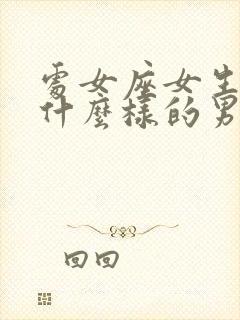 處女座女生
什麼樣的男
回回